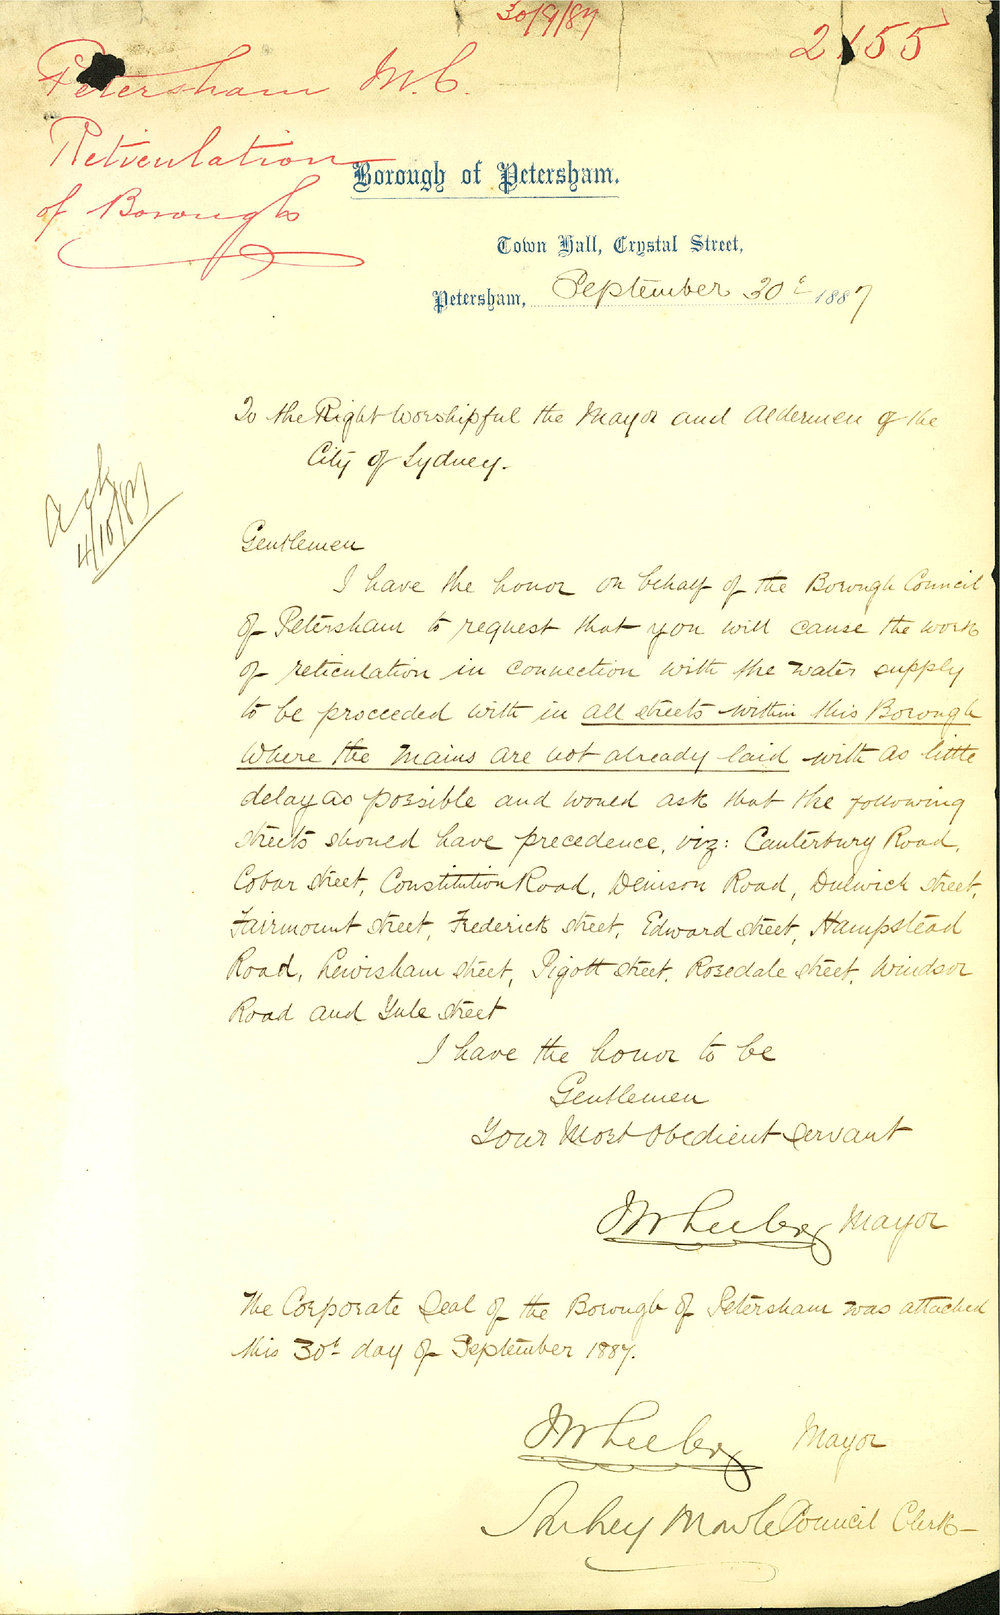 30/9/87
2155
Petersham M.C.
Reticulation
of Borough
Borough of Petersham.
Town Hall, Crystal Street,
Petersham, September 30t 1887
To the Right Worshipful the Mayor and Aldermen of the
City of Sydney.
Ack
4/10/87
Gentlemen
I have the honor on behalf of the Borough Council
of Petersham to request that you will cause the work
of reticulation in connection with the water supply
to be proceeded with in all streets within this Borough
where the mains are not already laid with as little
delay as possible and would ask that the following
streets should have precedence, viz: Canterbury Road,
Cobar street, Constitution Road, Denison Road, Dulwich street,
Fairmount street, Frederick street, Edward street, Hampstead
Road, Lewisham street, Pigott street, Rosedale street, Windsor
Road and Yule street
I have the honor to be
Gentlemen
Your Most Obedient Servant
J Wheeler Mayor
The Corporate Seal of the Borough of Petersham was attached
this 30t day of September 1887.
J Wheeler Mayor
Council Clerk